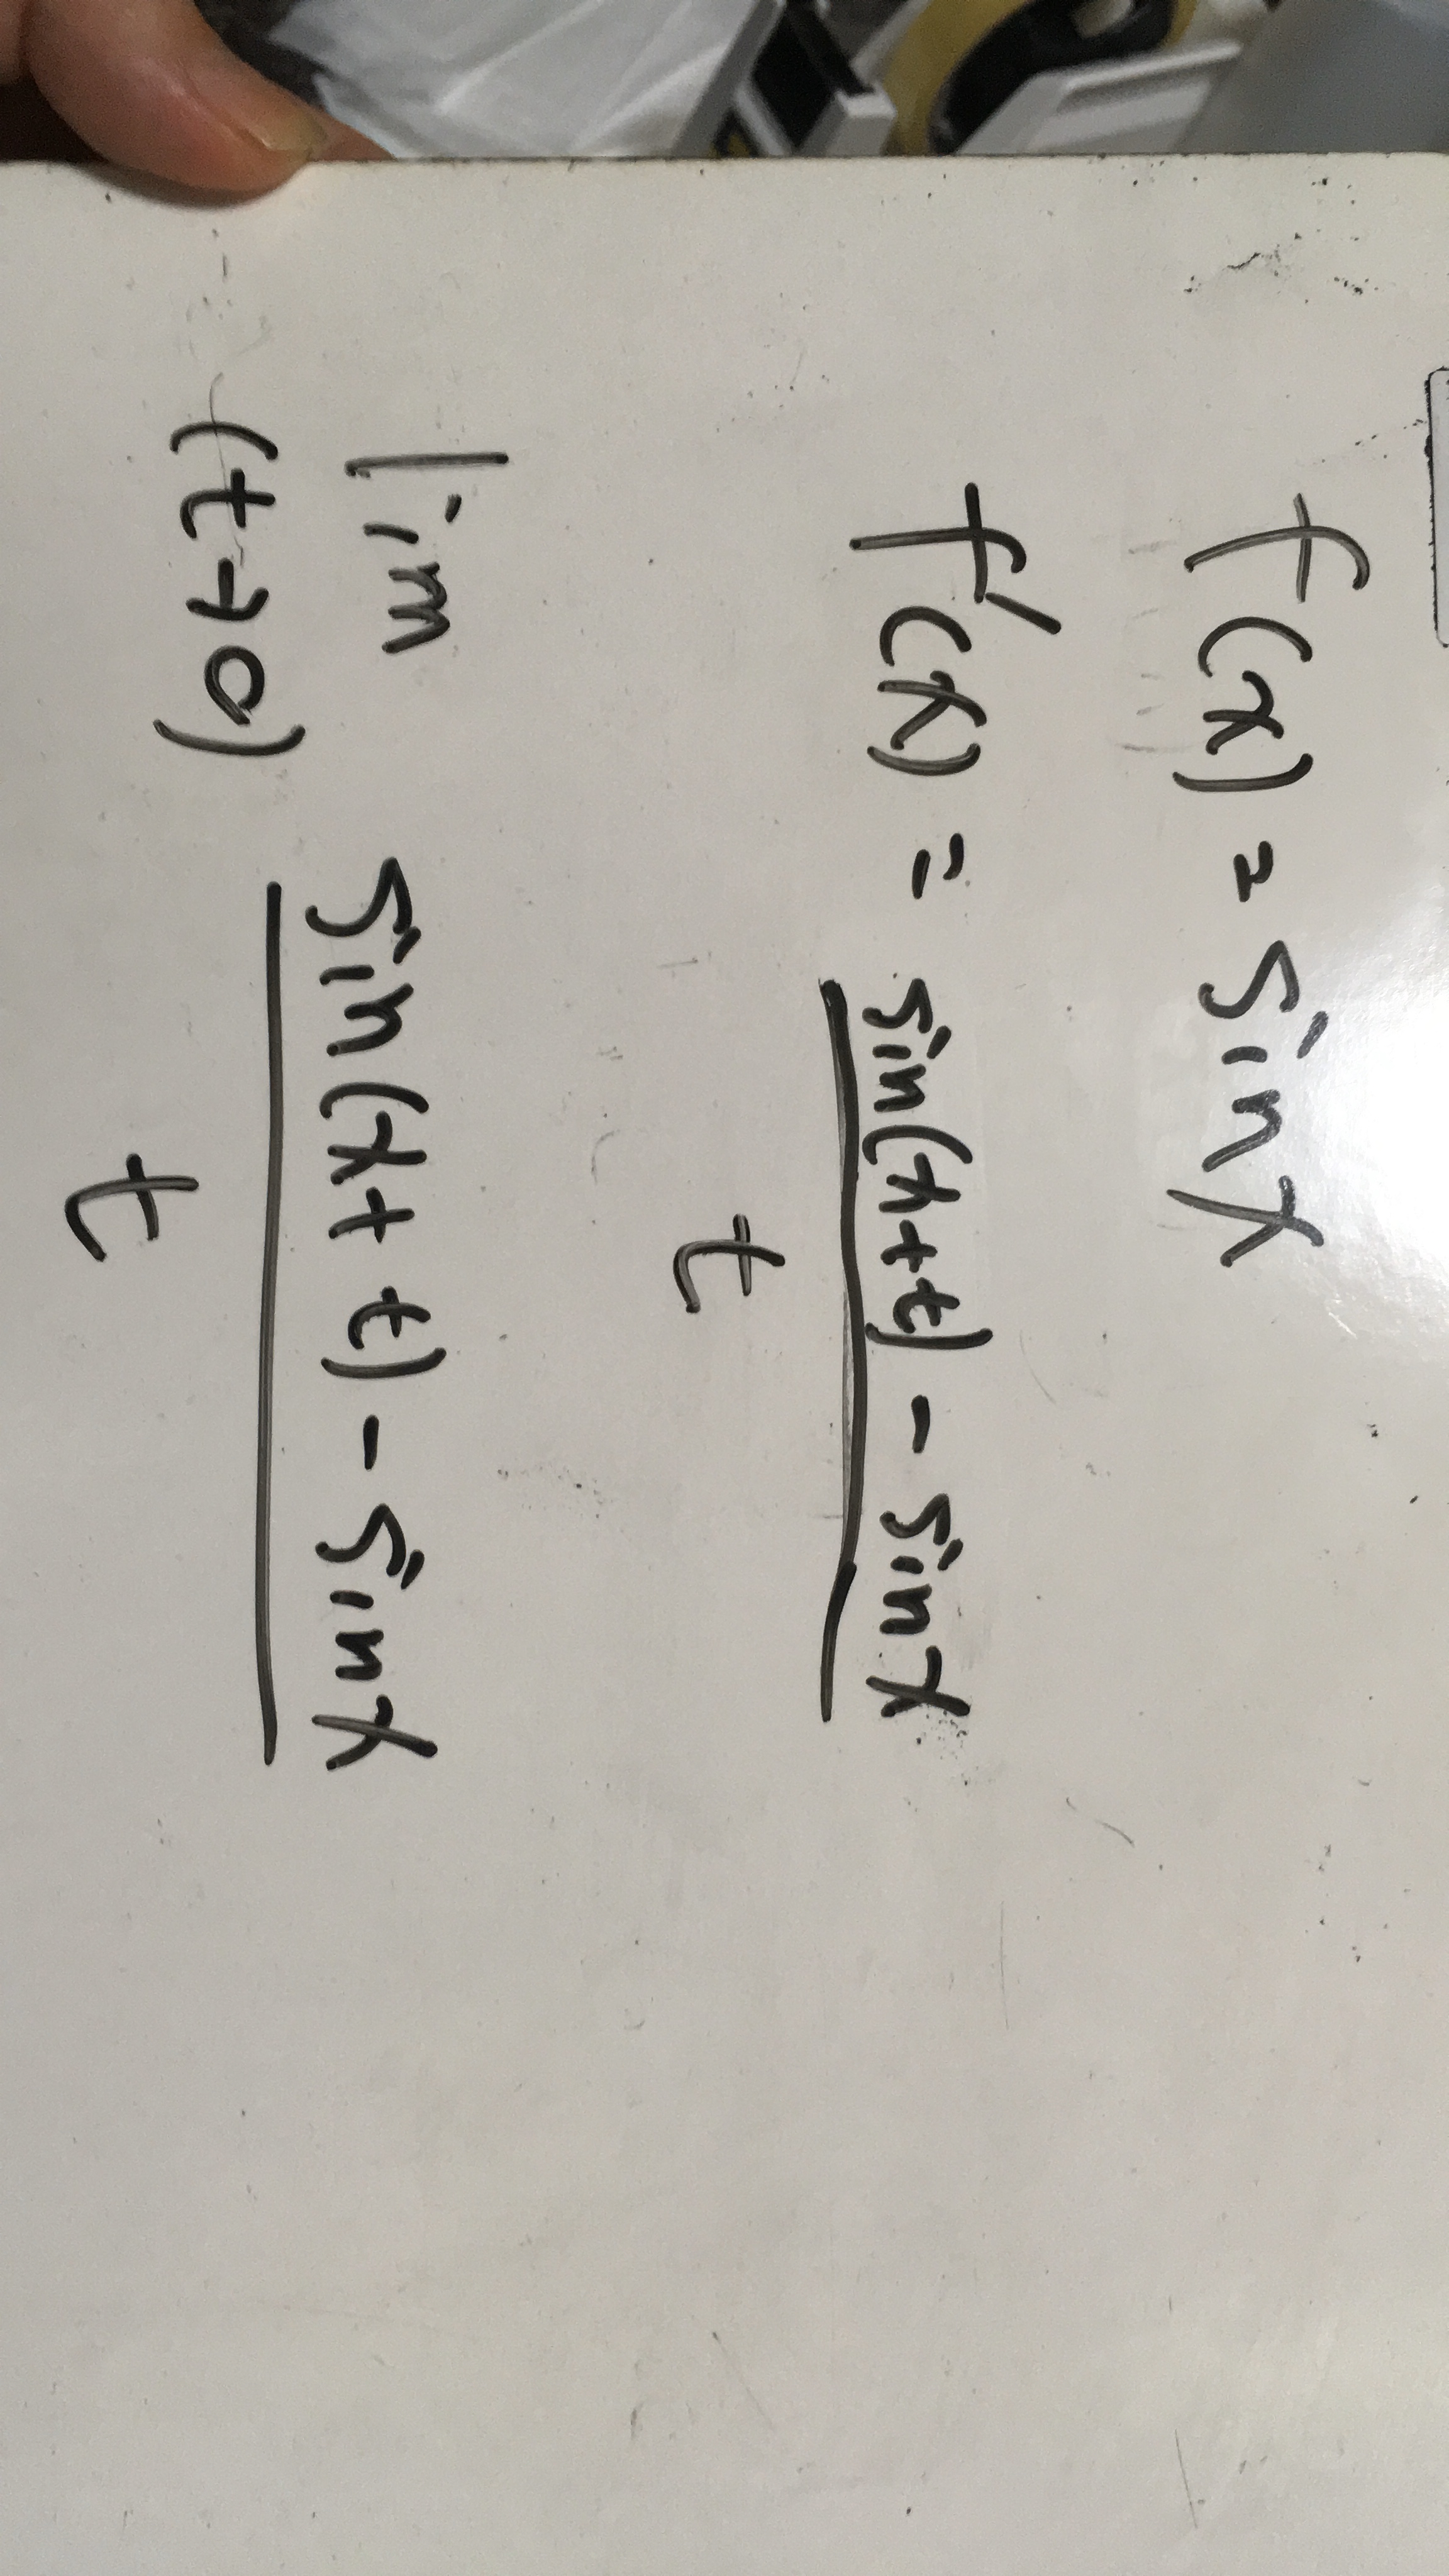 f(x) = sin x
f'(x) = sin(x+t) - sin x
t
lim sin(x+t) - sin x
(t→0) t